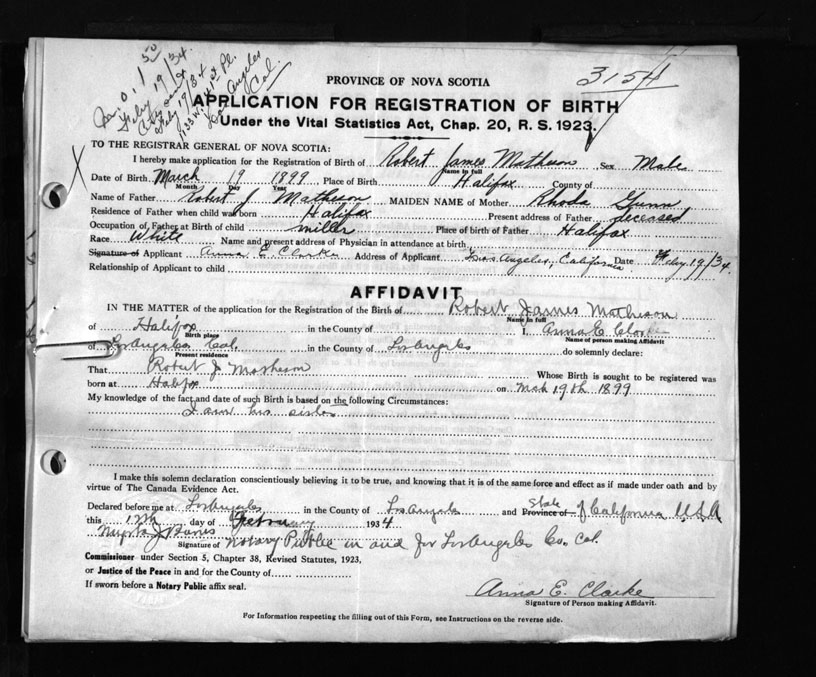 PROVINCE OF NOVA SCOTIA
3154
Feby 19/34.
Feby 19/34
Los Angeles
Cal.
APPLICATION FOR REGISTRATION OF BIRTH
Under the Vital Statistics Act, Chap. 20, R. S. 1923.
TO THE REGISTRAR GENERAL OF NOVA SCOTIA:
I hereby make application for the Registration of Birth of Robert James Matheson, Sex Male
Name in full
Date of Birth March 19 1899 Place of Birth Halifax County of
Month Day Year
Name of Father Robert J Matheson MAIDEN NAME of Mother Rhoda Gunn
Residence of Father when child was born Halifax Present address of Father deceased
Occupation of Father at Birth of child miller Place of birth of Father Halifax
Race White Name and present address of Physician in attendance at birth
Signature of Applicant Anna E. Clarke Address of Applicant Los Angeles, California Date Feby 19/34.
Relationship of Applicant to child
AFFIDAVIT
IN THE MATTER of the application for the Registration of the Birth of Robert James Matheson
Name in full
of Halifax in the County of I, Anna E Clarke
Birth place Name of person making Affidavit
of Los Angeles Cal. in the County of Los Angeles do solemnly declare:
Present residence
That Robert J Matheson Whose Birth is sought to be registered was
born at Halifax on Mch 19th 1899
My knowledge of the fact and date of such Birth is based on the following Circumstances:
I am his sister
I make this solemn declaration conscientiously believing it to be true, and knowing that it is of the same force and effect as if made under oath and by
virtue of The Canada Evidence Act.
Declared before me at Los Angeles in the County of Los Angeles and State Province of of California U.S.A
this day of February 1934
Signature of Notary Public in and for Los Angeles Co. Cal.
Commissioner under Section 5, Chapter 38, Revised Statutes, 1923,
or Justice of the Peace in and for the County of
If sworn before a Notary Public affix seal.
Anna E. Clarke
Signature of Person making Affidavit.
For Information respecting the filling out of this Form, see Instructions on the reverse side.